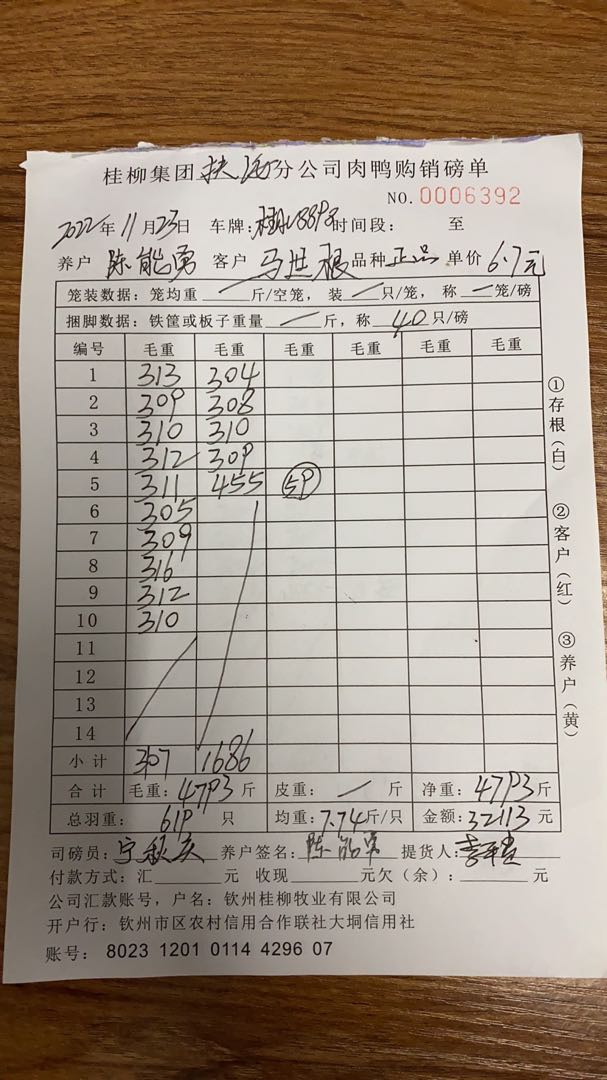 桂柳集团 分公司肉鸭购销磅单
NO.0006392
2022年11月23日 车牌: 时间段: 至
养户 陈能勇 客户 马世根 品种 正品 单价 6.7元
笼装数据: 笼均重 — 斤/空笼, 装 — 只/笼, 称 — 笼/磅
捆脚数据: 铁筐或板子重量 — 斤, 称 40 只/磅
编号 毛重 毛重 毛重 毛重 毛重 毛重
1 313 304
2 309 308
3 310 310
4 312 309
5 311 455 59
6 305
7 309
8 316
9 312
10 310
11
12
13
14
小计 1686
合计 毛重: 4793 斤 皮重: — 斤 净重: 4793 斤
总羽重: 619 只 均重: 7.74 斤/只 金额: 32113 元
司磅员: 宁秋庆 养户签名: 陈能勇 提货人:
付款方式: 汇 元 收现 元欠(余): 元
公司汇款账号, 户名: 钦州桂柳牧业有限公司
开户行: 钦州市区农村信用合作联社大垌信用社
账号: 8023 1201 0114 4296 07
①存根(白)
②客户(红)
③养户(黄)